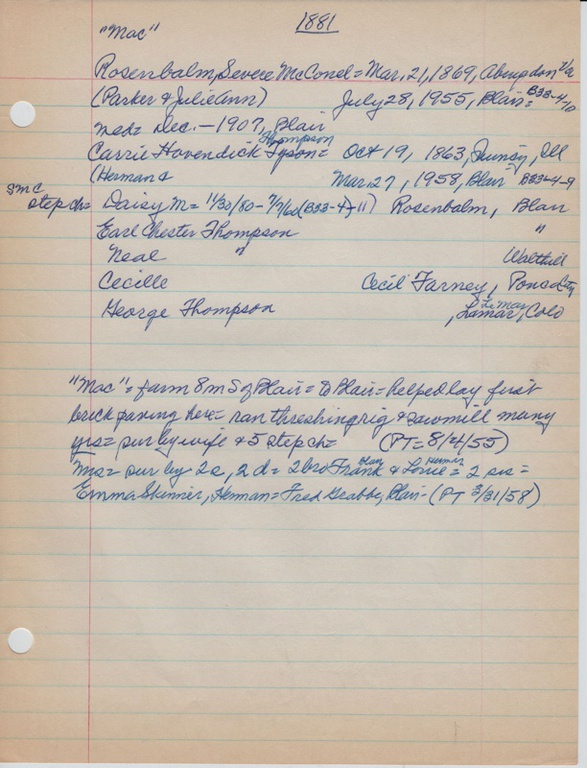 1881
"Mac"
Rosenbalm, Severe McConel = Mar, 21, 1869, Abingdon Va
(Parker & JulieAnn) July 28, 1955, Blair = B33-4-10
med = Dec. - 1907, Blair
Thompson
Carrie Hovendick Tyson = Oct 19, 1863, Quincy, Ill
(Herman & Mar. 27, 1958, Blair = B33-4-9
smc
step ch = Daisy M = 11/30/80 - 7/7/60 (B33-4-11) Rosenbalm, Blair
Earl Chester Thompson "
Neal " Walthill
Cecille Cecil Farney, Ponca City
George Thompson , Lamar, Colo
"Mac" = farm 8 m S of Blair = to Blair = helped lay first
brick paving here = ran threshing rig & sawmill many
yrs = sur by wife & 5 step ch = (PT = 8/4/55)
Mrs = sur by 2 s, 2 d = 2 bro Frank Blair & Louie Herman = 2 sis =
Emma Skinner, Herman = Fred Grabby, Blair - (PT 3/31/58)